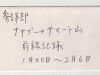 発信部
ナガダーサマート山
前線記録
1月20日〜2月6日